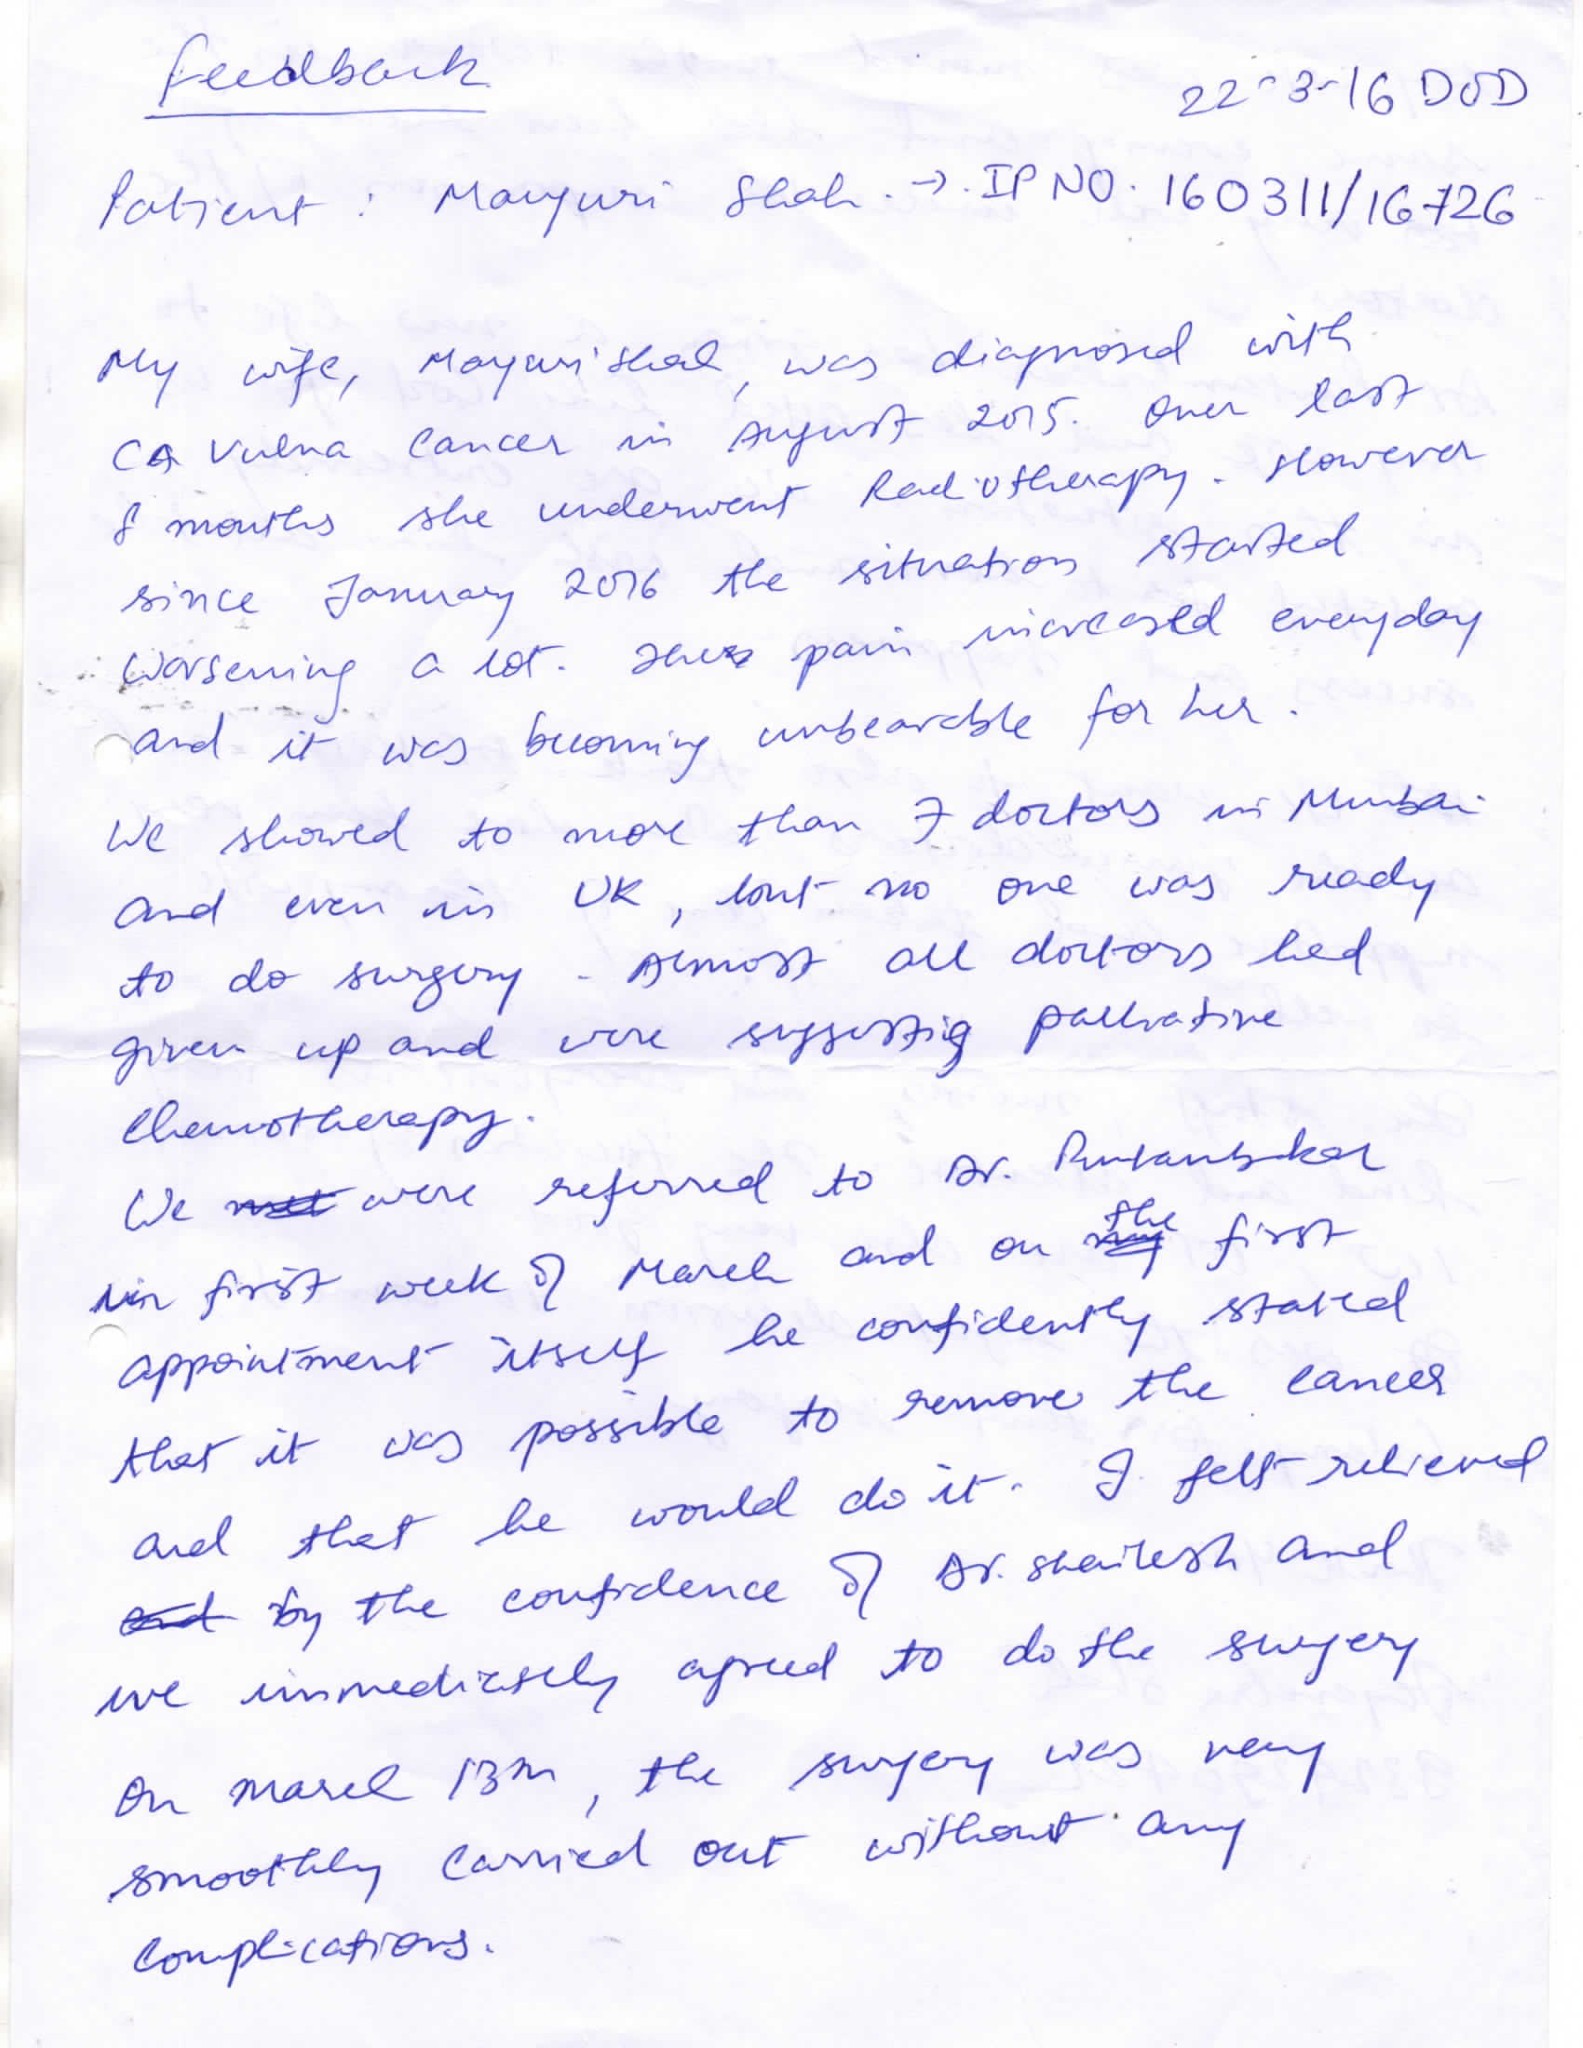 Feedback
22-3-16 DOD
Patient : Mayuri Shah. → IP NO. 160311/16726
My wife, Mayuri Shah, was diagnosed with
CA Vulva Cancer in August 2015. Over last
8 months she underwent Radiotherapy. However
since January 2016 the situation started
worsening a lot. pain increased everyday
and it was becoming unbearable for her.
We showed to more than 7 doctors in Mumbai
and even in UK, but no one was ready
to do surgery. Almost all doctors had
given up and were suggestig palliative
Chemotherapy.
We were referred to Dr. Puntambekar
in first week of March and on the first
appointment itself he confidently stated
that it was possible to remove the cancer
and that he would do it. I felt relieved
by the confidence of Dr. Shailesh and
we immediately agreed to do the surgery
On March 13th, the surgery was very
smoothly carried out without any
complications.